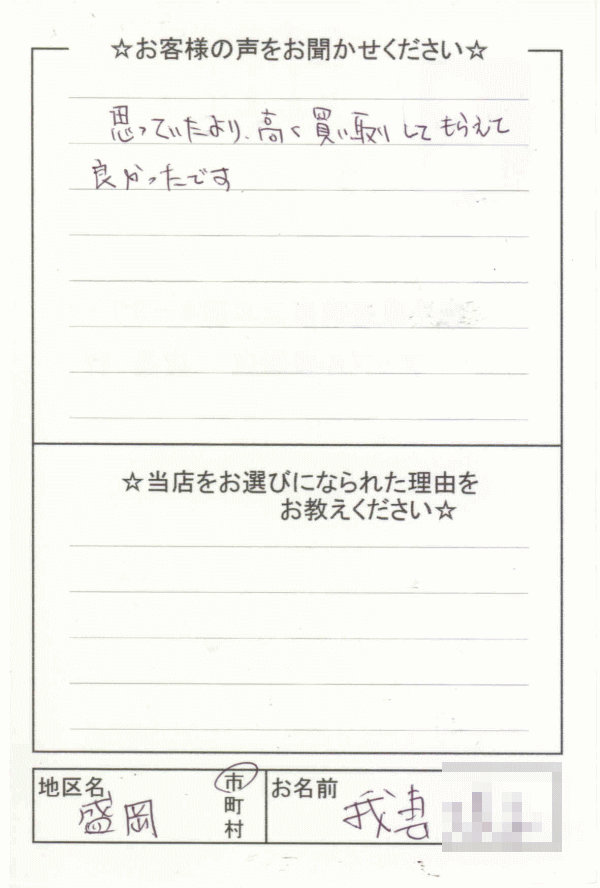 ☆お客様の声をお聞かせください☆
思っていたより、高く買い取りしてもらえて
良かったです
☆当店をお選びになられた理由を
お教えください☆
地区名 盛岡 市
町
村
お名前 我妻